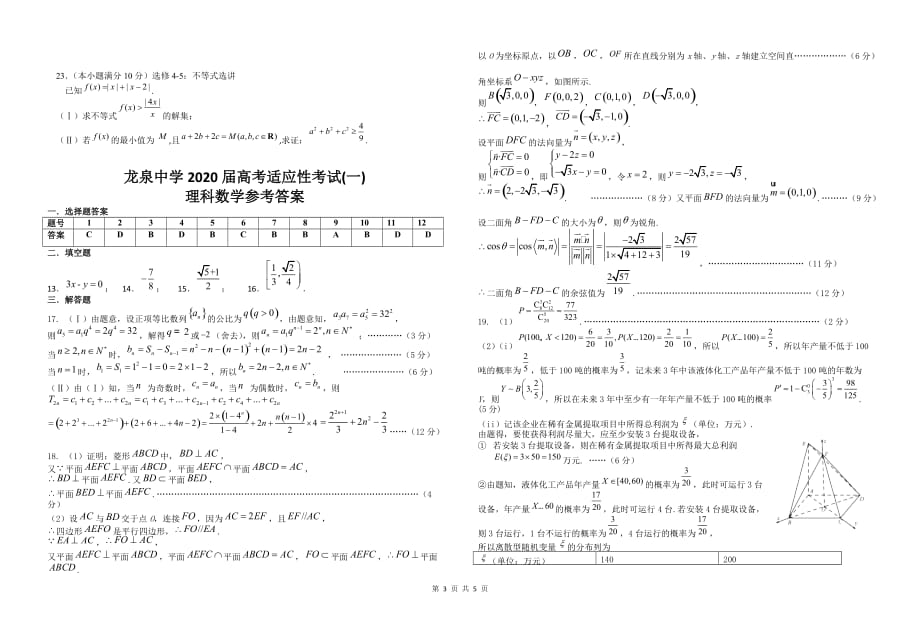 23.（本小题满分 10 分）选修 4-5：不等式选讲
已知 f(x)=|x|+|x-2|.
（Ⅰ）求不等式 f(x)>|4x|/x 的解集；
（Ⅱ）若 f(x) 的最小值为 M ,且 a+2b+2c=M(a,b,c∈R) ,求证： a²+b²+c²≥4/9.
龙泉中学 2020 届高考适应性考试(一)
理科数学参考答案
一．选择题答案
题号 1 2 3 4 5 6 7 8 9 10 11 12
答案 C D B D C B B A B C D D
二．填空题
13．3x-y=0； 14．-7/8； 15．(√5+1)/2； 16．[1/3, √2/4]．
三．解答题
17．（Ⅰ）由题意，设正项等比数列{aₙ}的公比为 q(q>0)，由题意知， a₃a₇=a₅²=32²，
则 a₅=a₁q⁴=2q⁴=32，解得 q=2 或-2（舍去），则 aₙ=a₁qⁿ⁻¹=2ⁿ,n∈N*；…………（3 分）
当 n≥2,n∈N* 时， bₙ=Sₙ-Sₙ₋₁=n²-n-(n-1)²+(n-1)=2n-2，………………（5 分）
当 n=1 时， b₁=S₁=1²-1=0=2×1-2，所以 bₙ=2n-2,n∈N*．………………（6 分）
（Ⅱ）由（Ⅰ）知，当 n 为奇数时， cₙ=aₙ，当 n 为偶数时， cₙ=bₙ，则
T₂ₙ=c₁+c₂+...+c₂ₙ=c₁+c₃+...+c₂ₙ₋₁+c₂+c₄+...+c₂ₙ
=(2+2³+...+2²ⁿ⁻¹)+(2+6+...+4n-2)=2(1-4ⁿ)/(1-4)+2n+n(n-1)/2×4=2²ⁿ⁺¹/3+2n²-2/3……（12 分）
18．（1）证明：菱形 ABCD 中， BD⊥AC，
又∵平面 AEFC⊥平面 ABCD，平面 AEFC∩平面 ABCD=AC，
∴BD⊥平面 AEFC．又 BD⊂平面 BED，
∴平面 BED⊥平面 AEFC．………………………………………………（4
分）
（2）设 AC 与 BD 交于点 O, 连接 FO，因为 AC=2EF，且 EF//AC，
∴四边形 AEFO 是平行四边形，∴FO//EA．
∵EA⊥AC，∴FO⊥AC，
又平面 AEFC⊥平面 ABCD，平面 AEFC∩平面 ABCD=AC， FO⊂平面 AEFC，∴FO⊥平面
ABCD．
以 O 为坐标原点，以 OB，OC，OF 所在直线分别为 x 轴、y 轴、z 轴建立空间直………………（6 分）
角坐标系 O-xyz，如图所示.
则 B(√3,0,0)， F(0,0,2)， C(0,1,0)， D(-√3,0,0)，
∴FC=(0,1,-2)，CD=(-√3,-1,0)．
设平面 DFC 的法向量为 n=(x,y,z)，
则 {n·FC=0 n·CD=0，即 {y-2z=0 -√3x-y=0，令 z=√3，则 y=-2√3,z=√3，
∴n=(2,-2√3,-√3)．…………（8 分）又平面 BFD 的法向量为 m=(0,1,0)．………（9 分）
设二面角 B-FD-C 的大小为θ，则θ为锐角．
∴cosθ=|cos⟨m,n⟩|=|m·n/|m||n||=|-2√3/(1×√(4+12+3))|=2√57/19，………………（11 分）
∴二面角 B-FD-C 的余弦值为 2√57/19．………………………………（12 分）
19．（1） P=C₈²C₁₂²/C₂₀⁴=77/323．………………………………………（2 分）
（2）（i） P(100„X<120)=6/20=3/10，P(X…120)=2/20=1/10，所以 P(X…100)=2/5，所以年产量不低于 100
吨的概率为 2/5，低于 100 吨的概率为 3/5，记未来 3 年中该液体化工产品年产量不低于 100 吨的年数为
Y，则 Y~B(3,2/5)，所以在未来 3 年中至少有一年年产量不低于 100 吨的概率 P'=1-C₃⁰(3/5)³=98/125.
(5 分)
（ii）记该企业在稀有金属提取项目中所得总利润为ξ（单位：万元）．
由题得，要使获得利润尽量大，应至少安装 3 台提取设备，
① 若安装 3 台提取设备，则在稀有金属提取项目中所得最大总利润
E(ξ)=3×50=150 万元．……（6 分）
②由题知，液体化工产品年产量 X∈[40,60)的概率为 3/20，此时可运行 3 台
设备，年产量 X…60 的概率为 17/20，此时可运行 4 台.若安装 4 台提取设备，
则 3 台运行，1 台不运行的概率为 3/20，4 台运行的概率为 17/20，
所以离散型随机变量ξ的分布列为
ξ（单位：万元） 140 200
第 3 页 共 5 页